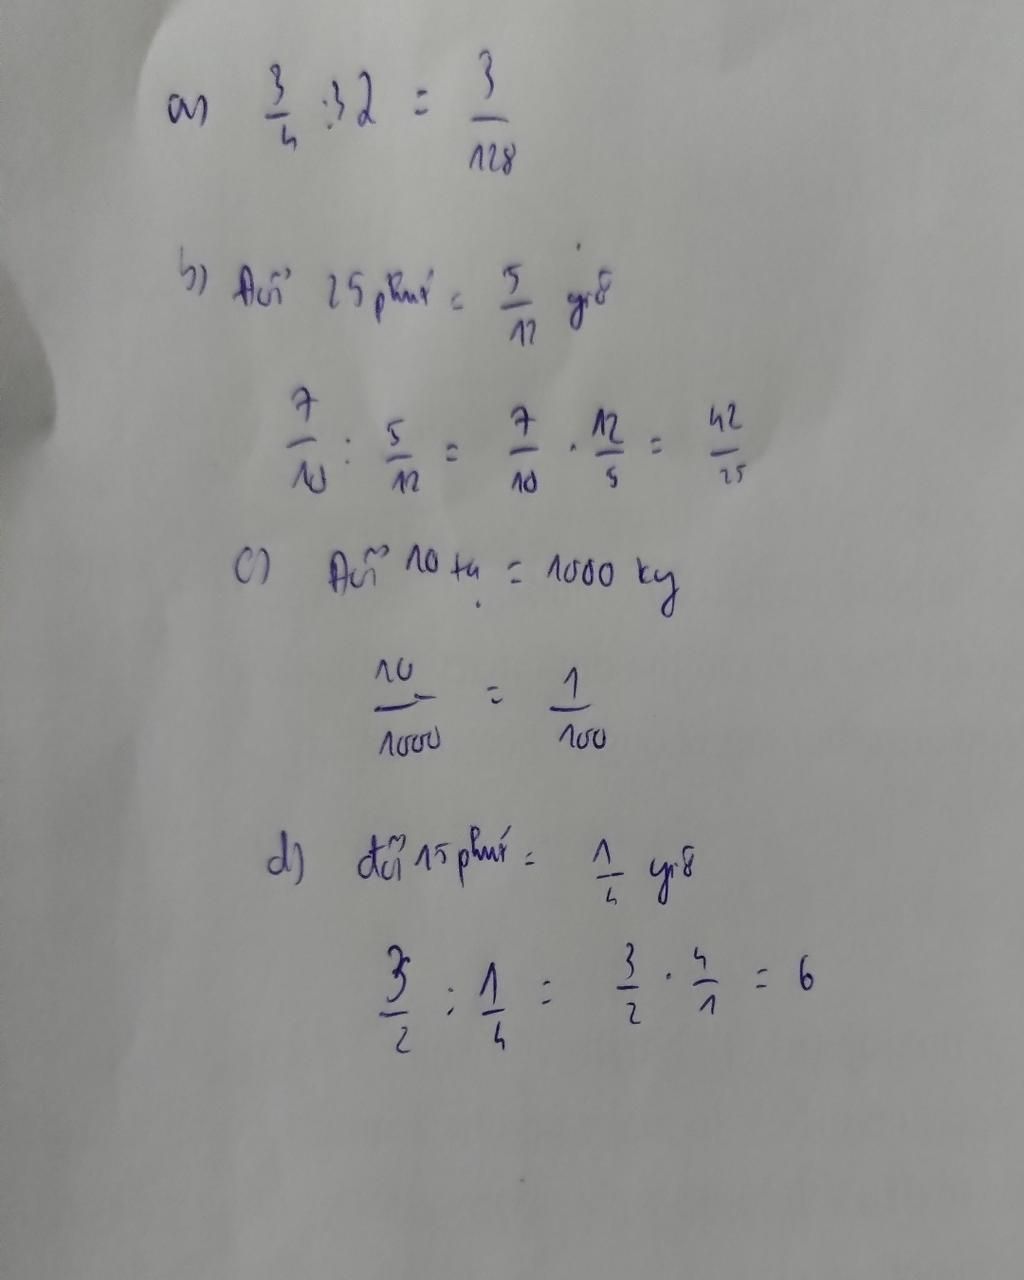 a) 3/4 : 32 = 3/128
b) Đổi 25 phút = 5/12 giờ
7/10 : 5/12 = 7/10 . 12/5 = 42/25
c) Đổi 10 tạ = 1000 kg
10/1000 = 1/100
d) đổi 15 phút = 1/4 giờ
3/2 : 1/4 = 3/2 . 4/1 = 6